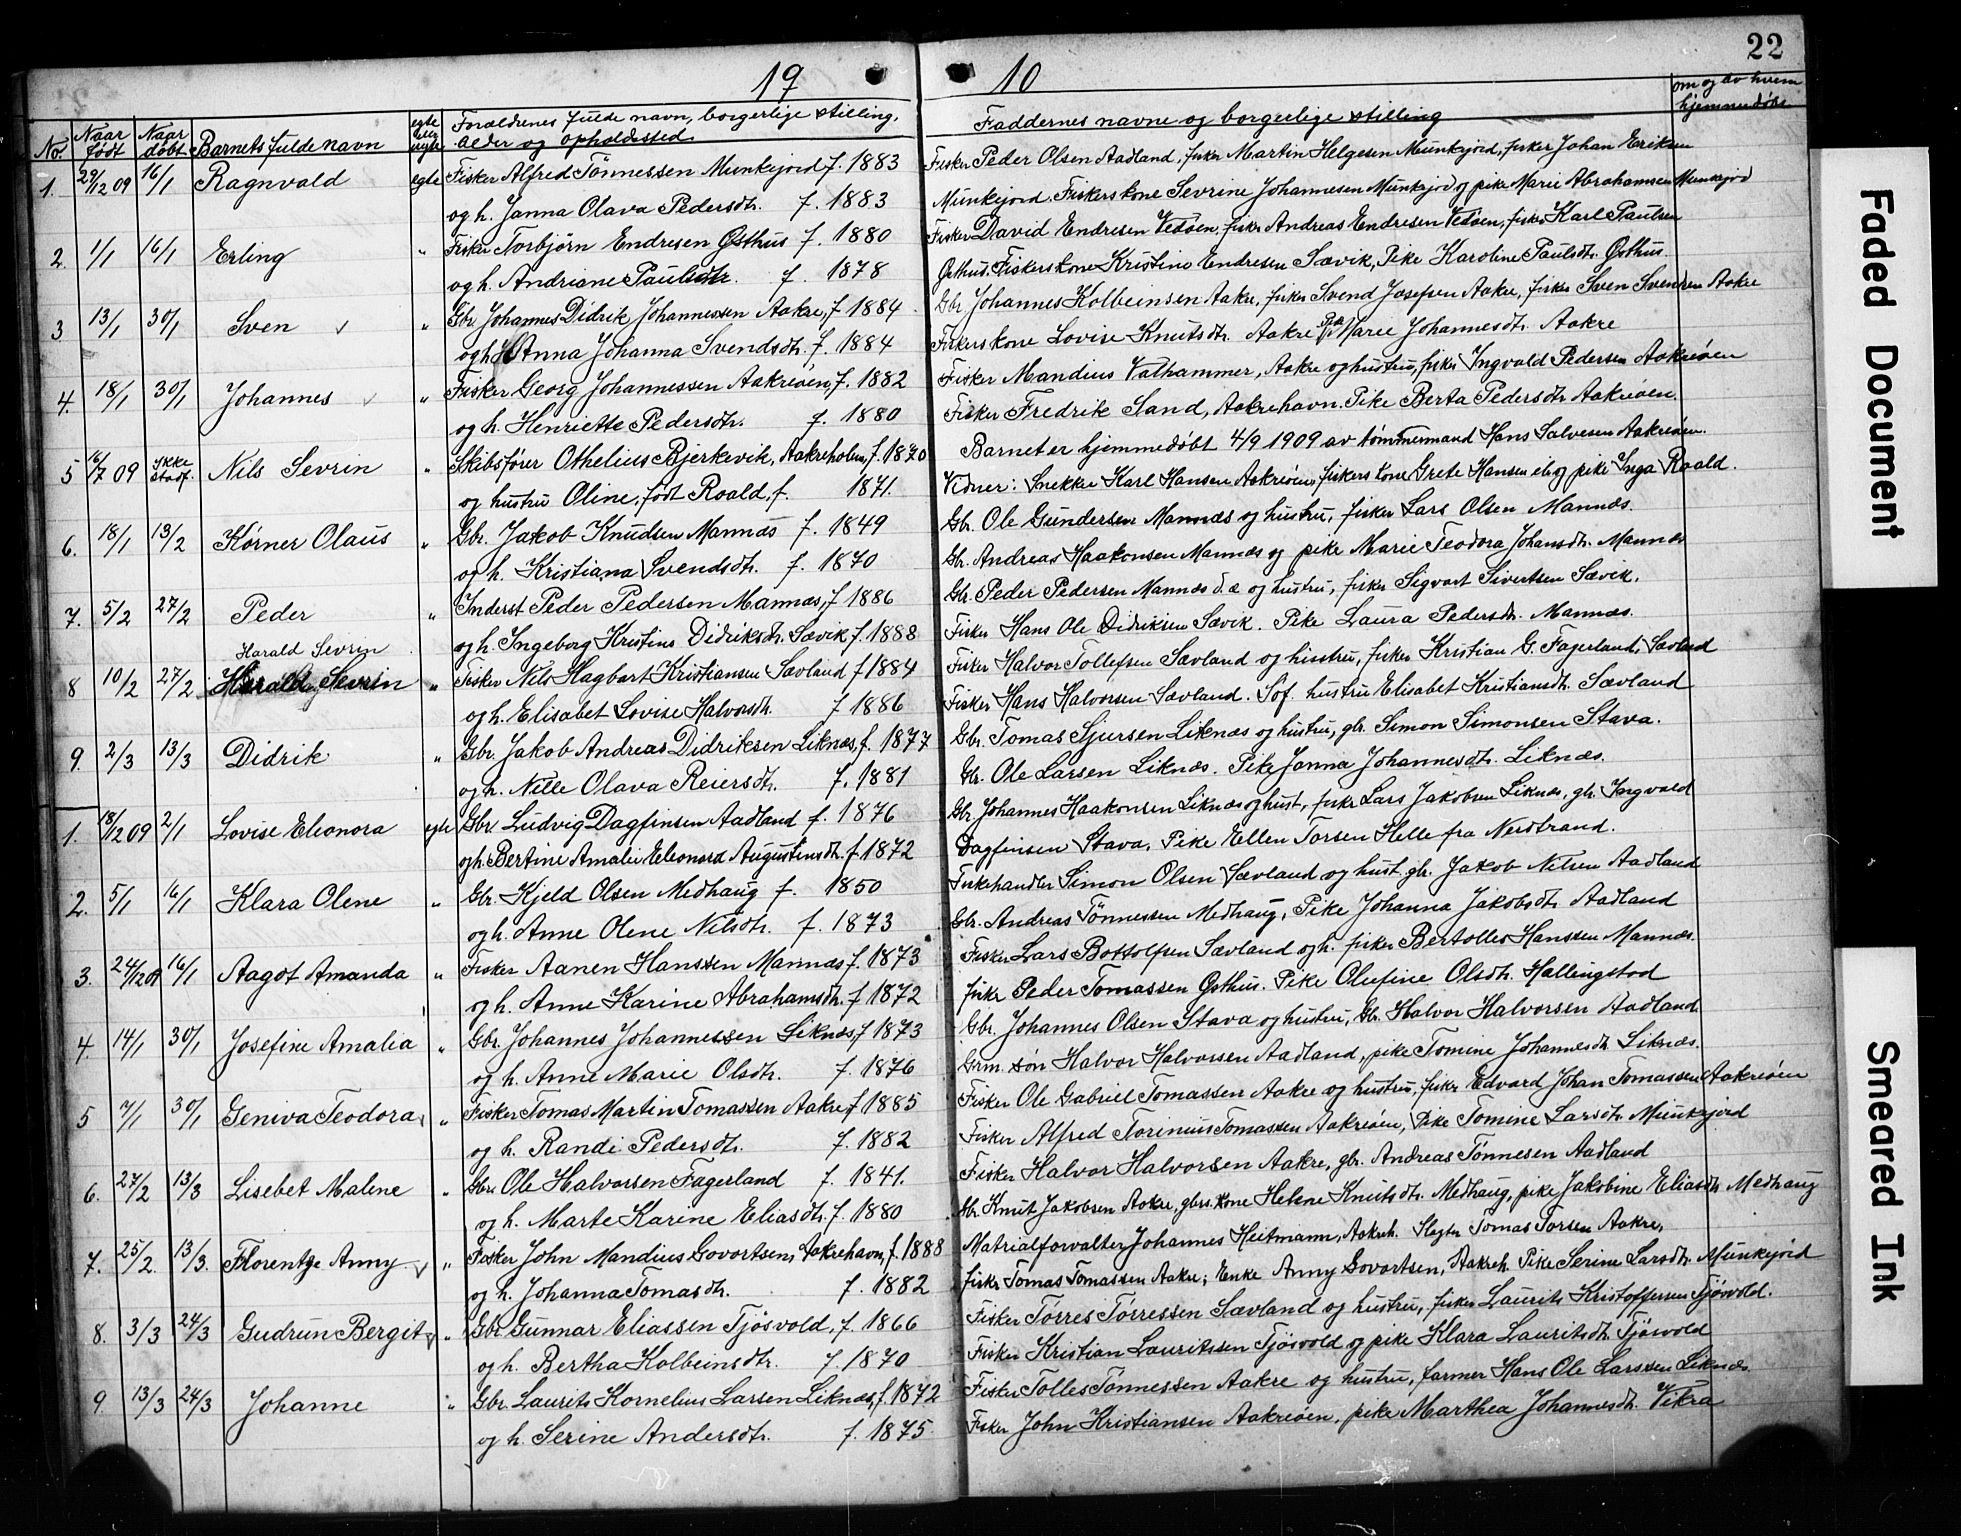 22
19 10
No. Naar født Naar døbt Barnets fulde navn egte eller uegte Forældrenes fulde navn, borgerlige stilling, alder og opholdssted Faddernes navne og borgerlige stilling om og av hvem hjemmedøbt
1. 29/12 09 16/1 Ragnvald egte Fisker Alfred Tönnessen Munkejord f. 1883 Fisker Peder Olsen Aadland, fisker Martin Helgesen Munkejord, fisker Johan Eriksen
og h. Janna Olava Pedersdtr. f. 1883 Munkejord, Fiskerskone Sevrine Johannesen Munkejord og pike Marie Abrahamsen Munkejord
2. 1/1 16/1 Erling " Fisker Torbjörn Endresen Østhus f. 1880 Fisker David Endresen Vedøen, fisker Andreas Endresen Vedøen, fisker Karl Paulsen
og h. Andriane Paulsdtr. f. 1878 Østhus. Fiskerskone Kristine Endresen Sævik, Pike Karoline Paulsdtr. Østhus.
3 13/1 30/1 Sven " Gbr. Johannes Didrik Johannessen Aakre, f 1884 Gbr. Johannes Kolbeinsen Aakre, fisker Svend Josefsen Aakre, fisker Sven Svendsen Aakre
og h. Anna Johanna Svendsdtr. f. 1884 Fiskerskone Lovise Knutsdtr. Aakre Pike Marie Johannesdtr. Aakre
4. 18/1 30/1 Johannes " Fisker Georg Johannessen Aakreøen, f. 1882 Fisker Mandius Valhammer, Aakre og hustru, fisker Ingvald Pedersen Aakreøen
og h. Henriette Pedersdtr. f. 1880 Fisker Fredrik Sand, Aakrehavn. Pike Berta Pedersdtr Aakreøen.
5 6/7 09 Ikke stadf. Nils Sevrin " Skibsfører Othelius Bjerkevik, Aakreholm, f. 1870 Barnet er hjemmedøbt 4/9 1909 av tømmermand Hans Salvesen Aakreøen.
og hustru Oline, født Roald, f. 1871. Vidner: Snekker Karl Hansen Aakreøen, fiskerskone Grete Hansen og pike Inga Roald.
6. 18/1 13/2 Kørner Olaus " Gbr. Jakob Knudsen Mannes f. 1849 Gbr. Ole Gundersen Mannes og hustru, fisker Lars Olsen Mannes.
og h. Kristiana Svendsdtr. f. 1870 Gbr. Andreas Haakonsen Mannes og pike Marie Teodora Johansdtr. Mannes
7. 5/2 27/2 Peder " Inderst Peder Pedersen Mannes, f 1886 Gbr. Peder Pedersen Mannes d. æ og hustru, fisker Sigvart Sivertsen Sævik.
og h. Ingeborg Kristine Didriksdtr. Sævik f. 1888 Fisker Hans Ole Didriksen Sævik. Pike Laura Pedersdtr. Mannes.
Harald Sevrin
8 10/2 27/2 Harald Sevrin " Fisker Nils Hagbart Kristiansen Sævland f 1884 Fisker Halvor Tollefsen Sævland og hustru, fisker Kristian G. Fagerland, Sævland
og h. Elisabet Lovise Halvorsdtr. f 1886 Fisker Hans Halvorsen Sævland. Sof. hustru Elisabet Kristiansdtr. Sævland
9. 2/3 13/3 Didrik " Gbr. Jakob Andreas Didriksen Liknes, f. 1877 Gbr. Tomas Sjursen Liknes og hustru, gbr. Simon Simonsen Stava.
og h. Nille Olava Reiersdtr. f. 1881 Gbr. Ole Larsen Liknes. Pike Janna Johannesdtr. Liknes.
1. 18/12 09 2/1 Lovise Eleonora egte Gbr Ludvig Dagfinsen Aadland f. 1876 Gbr Johannes Haakonsen Liknes og hust, fisker Lars Jakobsen Liknes, gbr. Ingvald
og h. Bertine Amalie Eleonora Augustinsdtr. f. 1872 Dagfinsen Stava, Pike Ellen Torsen Helle fra Nerstrand.
2. 5/1 16/1 Klara Olene " Gbr. Kjeld Olsen Medhaug f. 1850 Fiskehandler Simon Olsen Sævland og hust. gbr. Jakob Nilsen Aadland
og h. Anne Olene Nilsdtr. f. 1873 Gbr. Andreas Tönnessen Medhaug, Pike Johanna Jakobsdtr Aadland
3. 24/12 09 16/1 Aagot Amanda " Fisker Aanen Hanssen Mannes f. 1873 Fisker Lars Bottolfsen Sævland og h. fisker Bertolles Hanssen Mannes.
og h. Anne Karine Abrahamsdtr. f 1872 fisker Peder Tomassen Østhus. Pike Olufine Olsdtr. Hallingstad
4. 14/1 30/1 Josefine Amalia " Gbr. Johannes Johannessen Liknes, f 1873 Gbr. Johannes Olsen Stava og hustru, Gbr. Halvor Halvorsen Aadland.
og h. Anne Marie Olsdtr. f. 1876 Grm. søn Halvor Halvorsen Aadland, pike Tomine Johannesdtr Liknes.
5 7/1 30/1 Geniva Teodora " Fisker Tomas Martin Tomassen Aakre, f 1885 Fisker Ole Gabriel Tomassen Aakre og hustru, fisker Edvard Johan Tomassen Aakreøen
og h. Randi Pedersdtr. f. 1882 Fisker Alfred Torenius Tomassen Aakreøen, Pike Tomine Larsdtr Munkejord
6. 27/2 13/3 Lisebet Malene " Gbr. Ole Halvorsen Fagerland f. 1841. Fisker Halvor Halvorsen Aakre, gbr. Andreas Tönnesen Aadland
og h. Marte Karine Eliasdtr. f. 1880 Gbr. Knut Jakobsen Aakre, gbrs. kone Helene Knutsdtr. Medhaug, pike Jakobine Eliasdtr Medhaug
7. 25/2. 13/3. Florentge Anny " Fisker John Mandius Govortsen, Aakrehavn, f. 1888 Matrialforvalter Johannes Heitmann, Aakreh. Slegtn Tomas Torsen Aakre,
og h. Johanna Tomasdtr. f. 1882 fisker Tomas Tomassen Aakre, Enke Anny Govortsen, Aakreh. Pike Serine Larsdtr. Munkejord
8. 3/3 24/3 Gudrun Bergit " Gbr. Gunnar Eliassen Tjösvold, f. 1866 Fisker Tørres Tørressen Sævland og hustru, fisker Laurits Kristoffersen Tjösvold.
og h. Bertha Kolbeinsdtr. f 1870 Fisker Kristian Lauritssen Tjösvold og pike Klara Lauritsdtr Tjösvold
9. 13/3 24/3 Johanne " Gbr. Laurits Kornelius Larsen Liknes, f. 1872 Fisker Tolles Tönnessen Aakre og hustru, farmer Hans Ole Larssen Liknes.
og h. Serine Andersdtr. f. 1875. Fisker John Kristiansen Aakreøen, pike Marthea Johannesdtr. Vikra
Faded Document
Smeared Ink